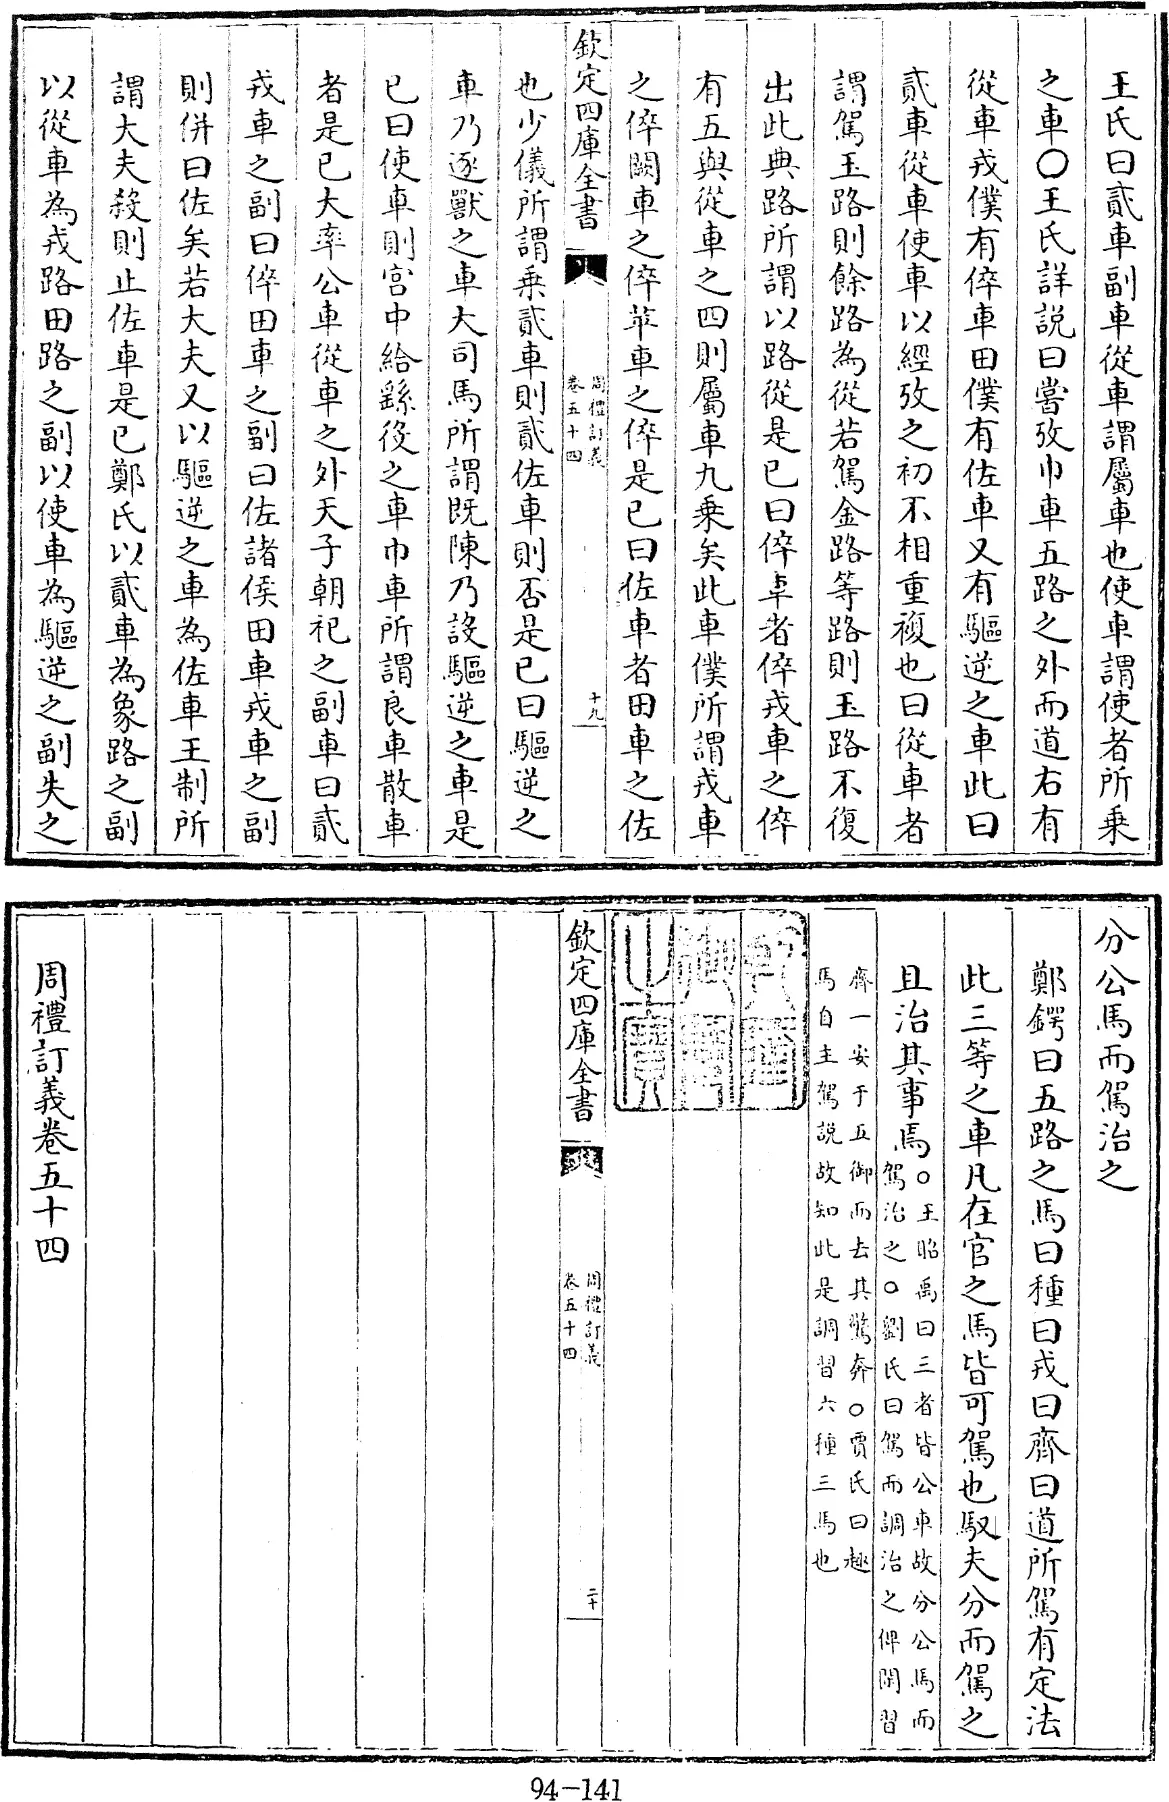 王氏曰貳車副車從車謂屬車也使車謂使者所乘
之車〇王氏詳説曰嘗攷巾車五路之外而道右有
從車戎僕有倅車田僕有佐車又有驅逆之車此曰
貳車從車使車以經攷之初不相重複也曰從車者
謂駕玉路則餘路為從若駕金路等路則玉路不復
出此典路所謂以路從是已曰倅車者倅戎車之倅
有五與從車之四則屬車九乗矣此車僕所謂戎車
之倅闕車之倅苹車之倅是已曰佐車者田車之佐
欽定四庫全書
周禮訂義
卷五十四
十九
也少儀所謂乗貳車則貳佐車則否是已曰驅逆之
車乃逐獸之車大司馬所謂既陳乃設驅逆之車是
已曰使車則宫中給繇役之車巾車所謂良車散車
者是已大率公車從車之外天子朝祀之副車曰貳
戎車之副曰倅田車之副曰佐諸侯田車戎車之副
則併曰佐矣若大夫又以驅逆之車為佐車王制所
謂大夫殺則止佐車是已鄭氏以貳車為象路之副
以從車為戎路田路之副以使車為驅逆之副失之
分公馬而駕治之
鄭鍔曰五路之馬曰種曰戎曰齊曰道所駕有定法
此三等之車凡在官之馬皆可駕也馭夫分而駕之
且治其事焉
〇王昭禹曰三者皆公車故分公馬而
駕治之〇劉氏曰駕而調治之俾閑習
齊一安于五御而去其驚奔〇賈氏曰趣
馬自主駕説故知此是調習六種三馬也
欽定四庫全書
周禮訂義
卷五十四
二十
周禮訂義卷五十四
94-141